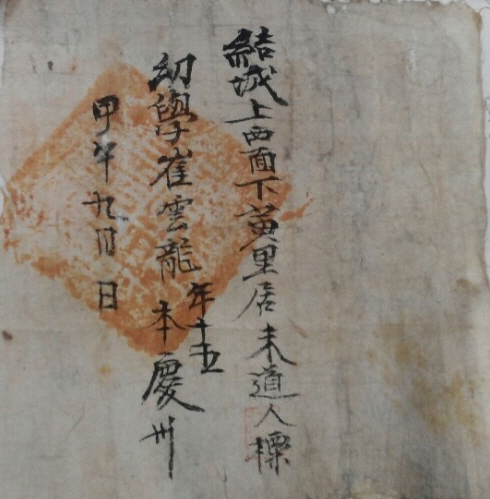 結城上西面下黃里居未道人標
幼學崔雲龍年十五本慶州
甲午九月日